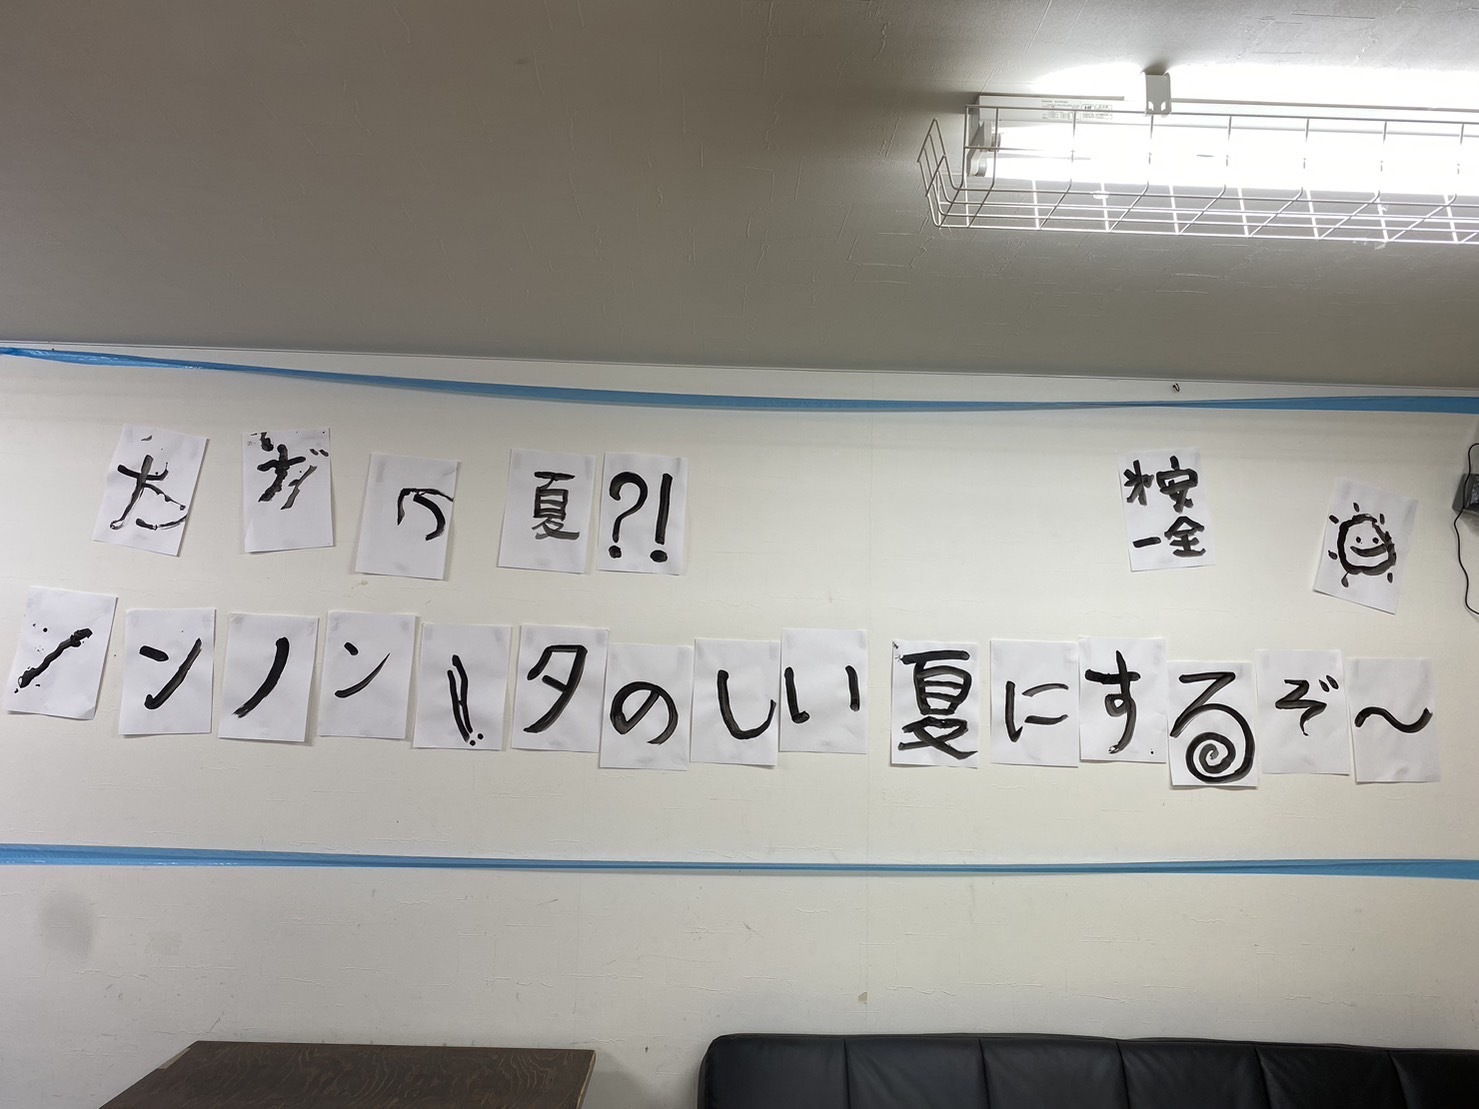 たギの夏?!
安全
一
ノンノン!!タのしい夏にするぞ〜